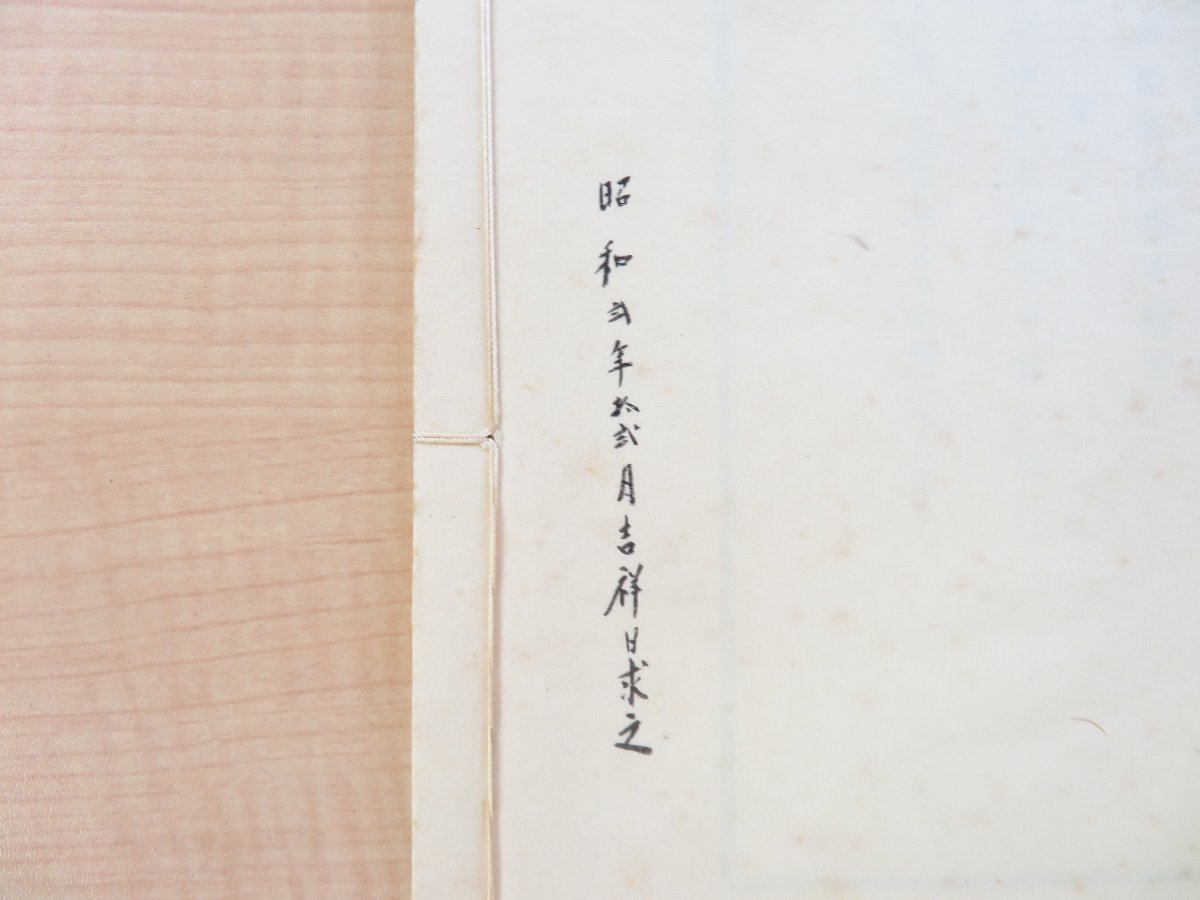 昭和弐年拾弐月吉祥日求之